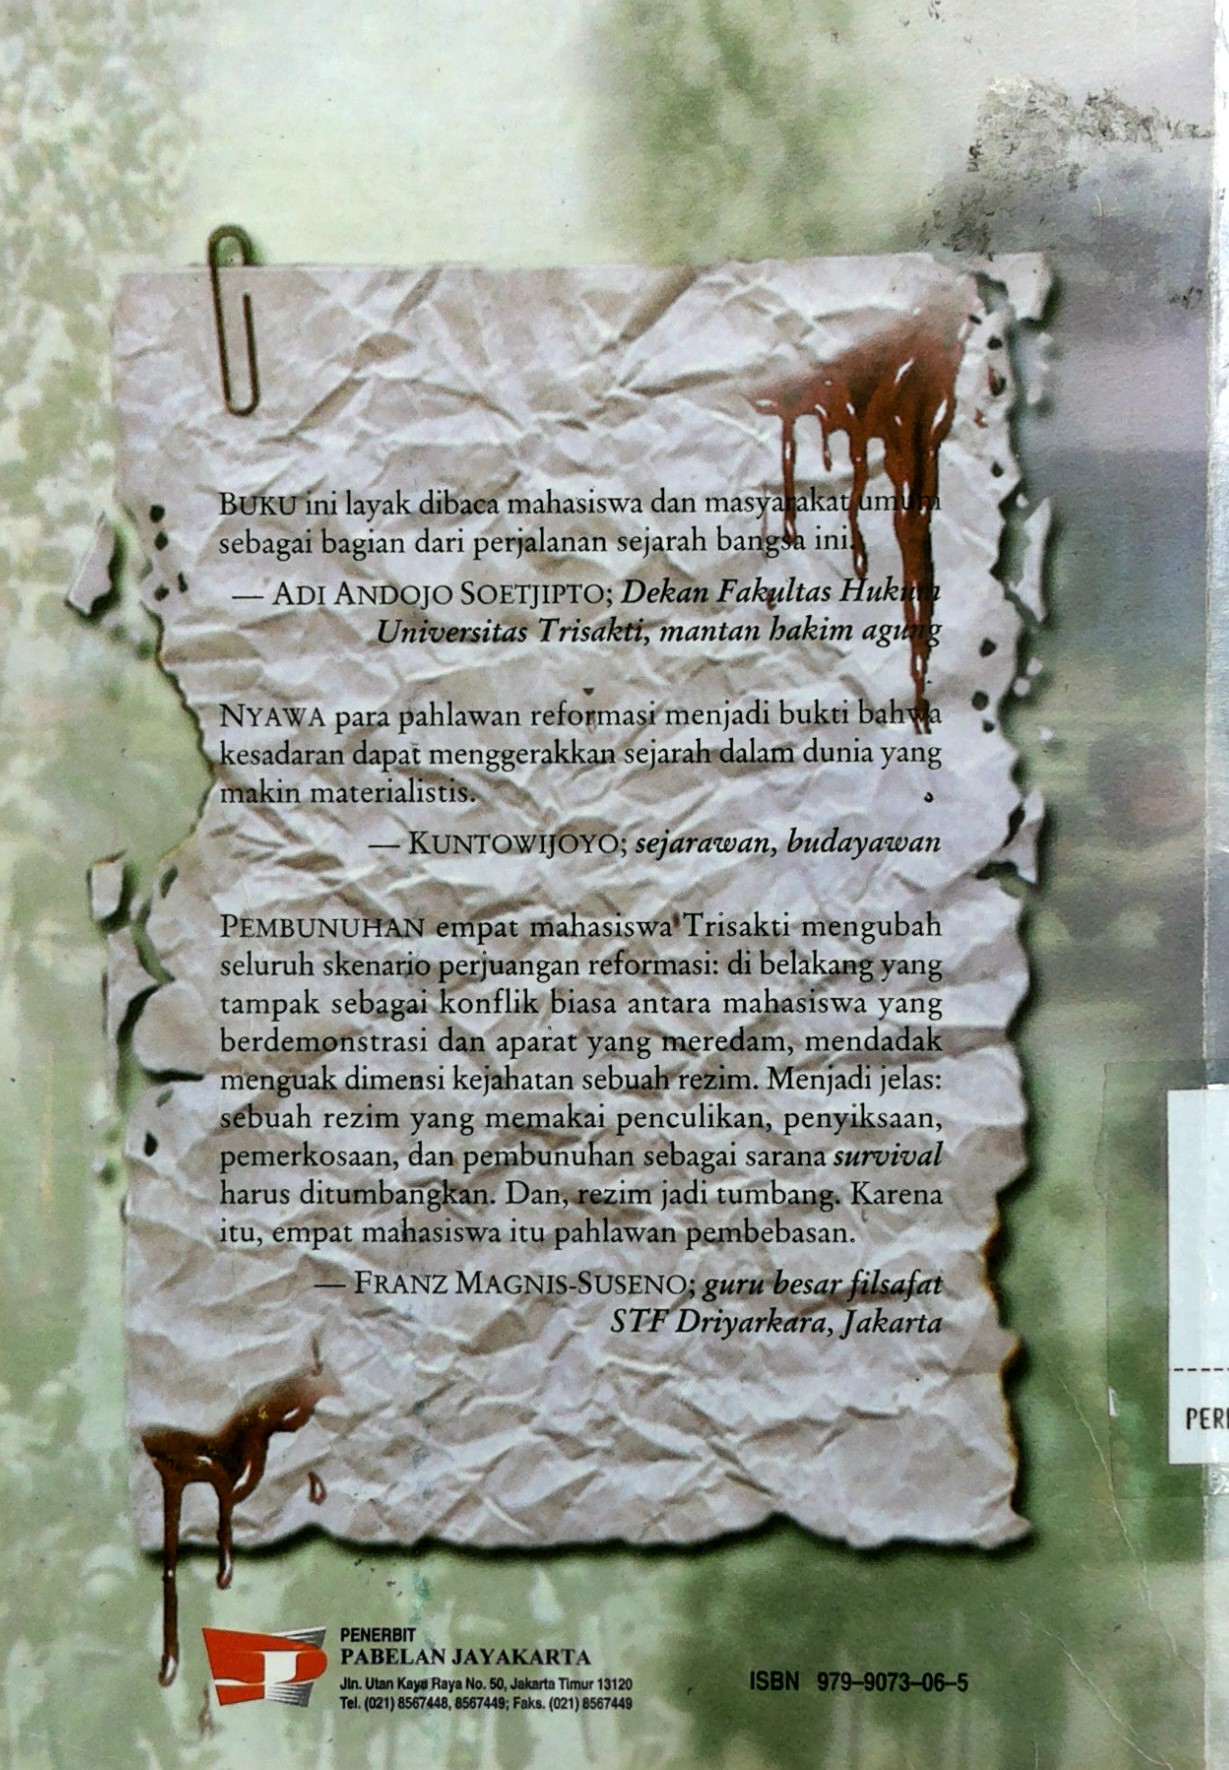 BUKU ini layak dibaca mahasiswa dan masyarakat umum
sebagai bagian dari perjalanan sejarah bangsa ini.
— ADI ANDOJO SOETJIPTO; Dekan Fakultas Hukum
Universitas Trisakti, mantan hakim agung
NYAWA para pahlawan reformasi menjadi bukti bahwa
kesadaran dapat menggerakkan sejarah dalam dunia yang
makin materialistis.
— KUNTOWIJOYO; sejarawan, budayawan
PEMBUNUHAN empat mahasiswa Trisakti mengubah
seluruh skenario perjuangan reformasi: di belakang yang
tampak sebagai konflik biasa antara mahasiswa yang
berdemonstrasi dan aparat yang meredam, mendadak
menguak dimensi kejahatan sebuah rezim. Menjadi jelas:
sebuah rezim yang memakai penculikan, penyiksaan,
pemerkosaan, dan pembunuhan sebagai sarana survival
harus ditumbangkan. Dan, rezim jadi tumbang. Karena
itu, empat mahasiswa itu pahlawan pembebasan.
— FRANZ MAGNIS-SUSENO; guru besar filsafat
STF Driyarkara, Jakarta
PENERBIT
PABELAN JAYAKARTA
Jln. Utan Kayu Raya No. 50, Jakarta Timur 13120
Tel. (021) 8567448, 8567449; Faks. (021) 8567449
ISBN 979–9073–06–5